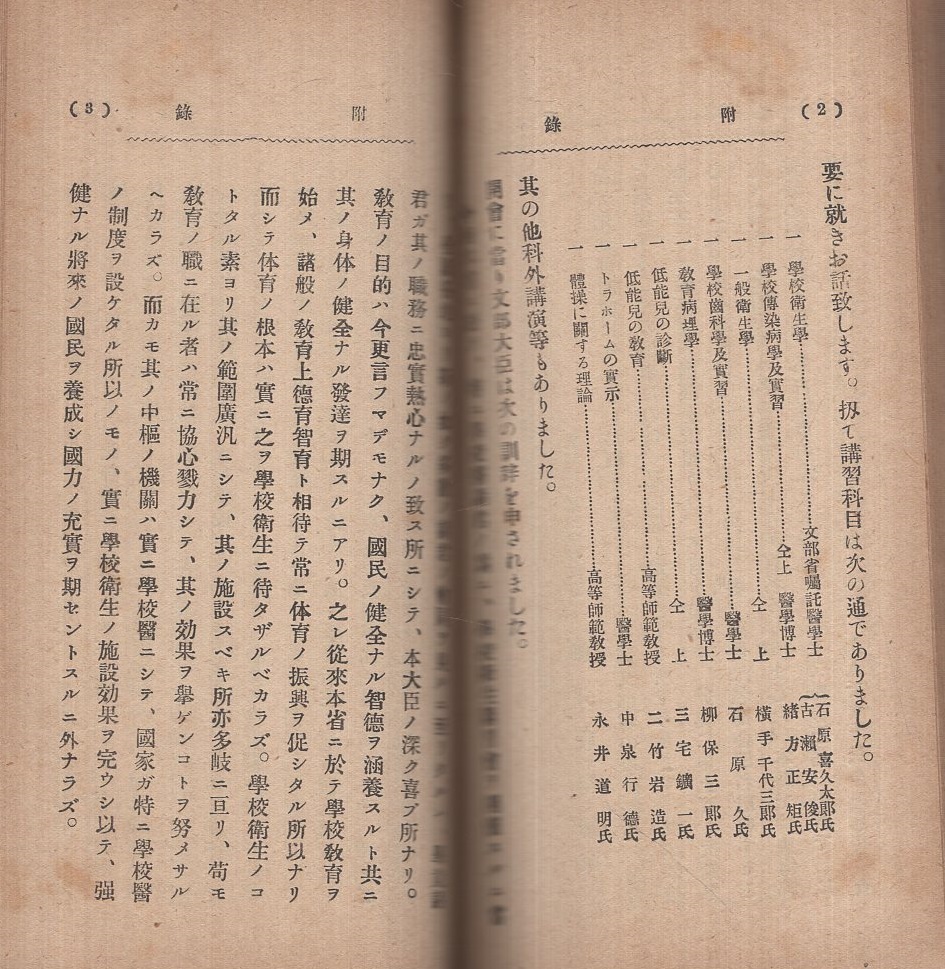 (2)
附錄
要に就きお話致します。扨て講習科目は次の通でありました。
一 學校衛生學 文部省囑託醫學士 石原喜久太郎氏 古瀨安俊氏
一 學校傳染病學及實習 仝上 醫學博士 緒方正矩氏
一 一般衛生學 仝上 橫手千代三郎氏
一 學校齒科學及實習 醫學士 石原久氏
一 敎育病理學 醫學博士 柳保三郎氏
一 低能兒の診斷 仝上 三宅鑛一氏
一 低能兒の敎育 高等師範敎授 二竹岩造氏
一 トラホームの實示 醫學士 中泉行德氏
一 體操に關する理論 高等師範敎授 永井道明氏
其の他科外講演等もありました。
開會に當り文部大臣は次の訓辭を申されました。
(3)
附錄
君ガ其ノ職務ニ忠實熱心ナルノ致ス所ニシテ、本大臣ノ深ク喜ブ所ナリ。
敎育ノ目的ハ今更言フマデモナク、國民ノ健全ナル智德ヲ涵養スルト共ニ
其ノ身体ノ健全ナル發達ヲ期スルニアリ。之レ從來本省ニ於テ學校敎育ヲ
始メ、諸般ノ敎育上德育智育ト相待テ常ニ体育ノ振興ヲ促シタル所以ナリ
而シテ体育ノ根本ハ實ニ之ヲ學校衛生ニ待タザルベカラズ。學校衛生ノコ
トタル素ヨリ其ノ範圍廣汎ニシテ、其ノ施設スベキ所亦多岐ニ亘リ、苟モ
敎育ノ職ニ在ル者ハ常ニ協心戮力シテ、其ノ効果ヲ擧ゲンコトヲ努メサル
ヘカラズ。而カモ其ノ中樞ノ機關ハ實ニ學校醫ニシテ、國家ガ特ニ學校醫
ノ制度ヲ設ケタル所以ノモノ、實ニ學校衛生ノ施設効果ヲ完ウシ以テ、强
健ナル將來ノ國民ヲ養成シ國力ノ充實ヲ期セントスルニ外ナラズ。